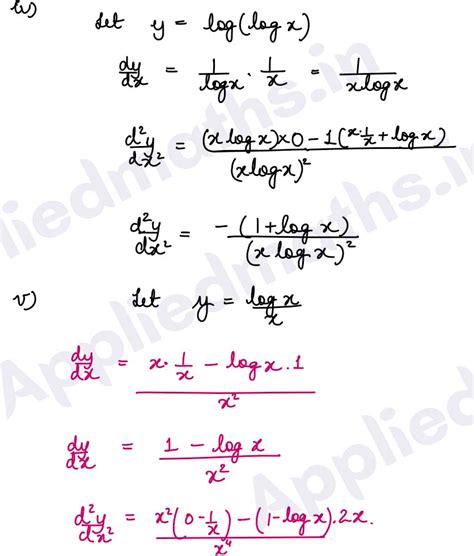 iv) Let y = log(log x)
dy/dx = 1/log x · 1/x = 1/x log x
d²y/dx² = (x log x)×0 − 1(x·1/x + log x)/(x log x)²
d²y/dx² = −(1+log x)/(x log x)²
v) Let y = log x/x
dy/dx = x·1/x − log x.1/x²
dy/dx = 1 − log x/x²
d²y/dx² = x²(0−1/x) − (1−log x).2x./x⁴
Appliedmaths.in
Appliedmaths.in